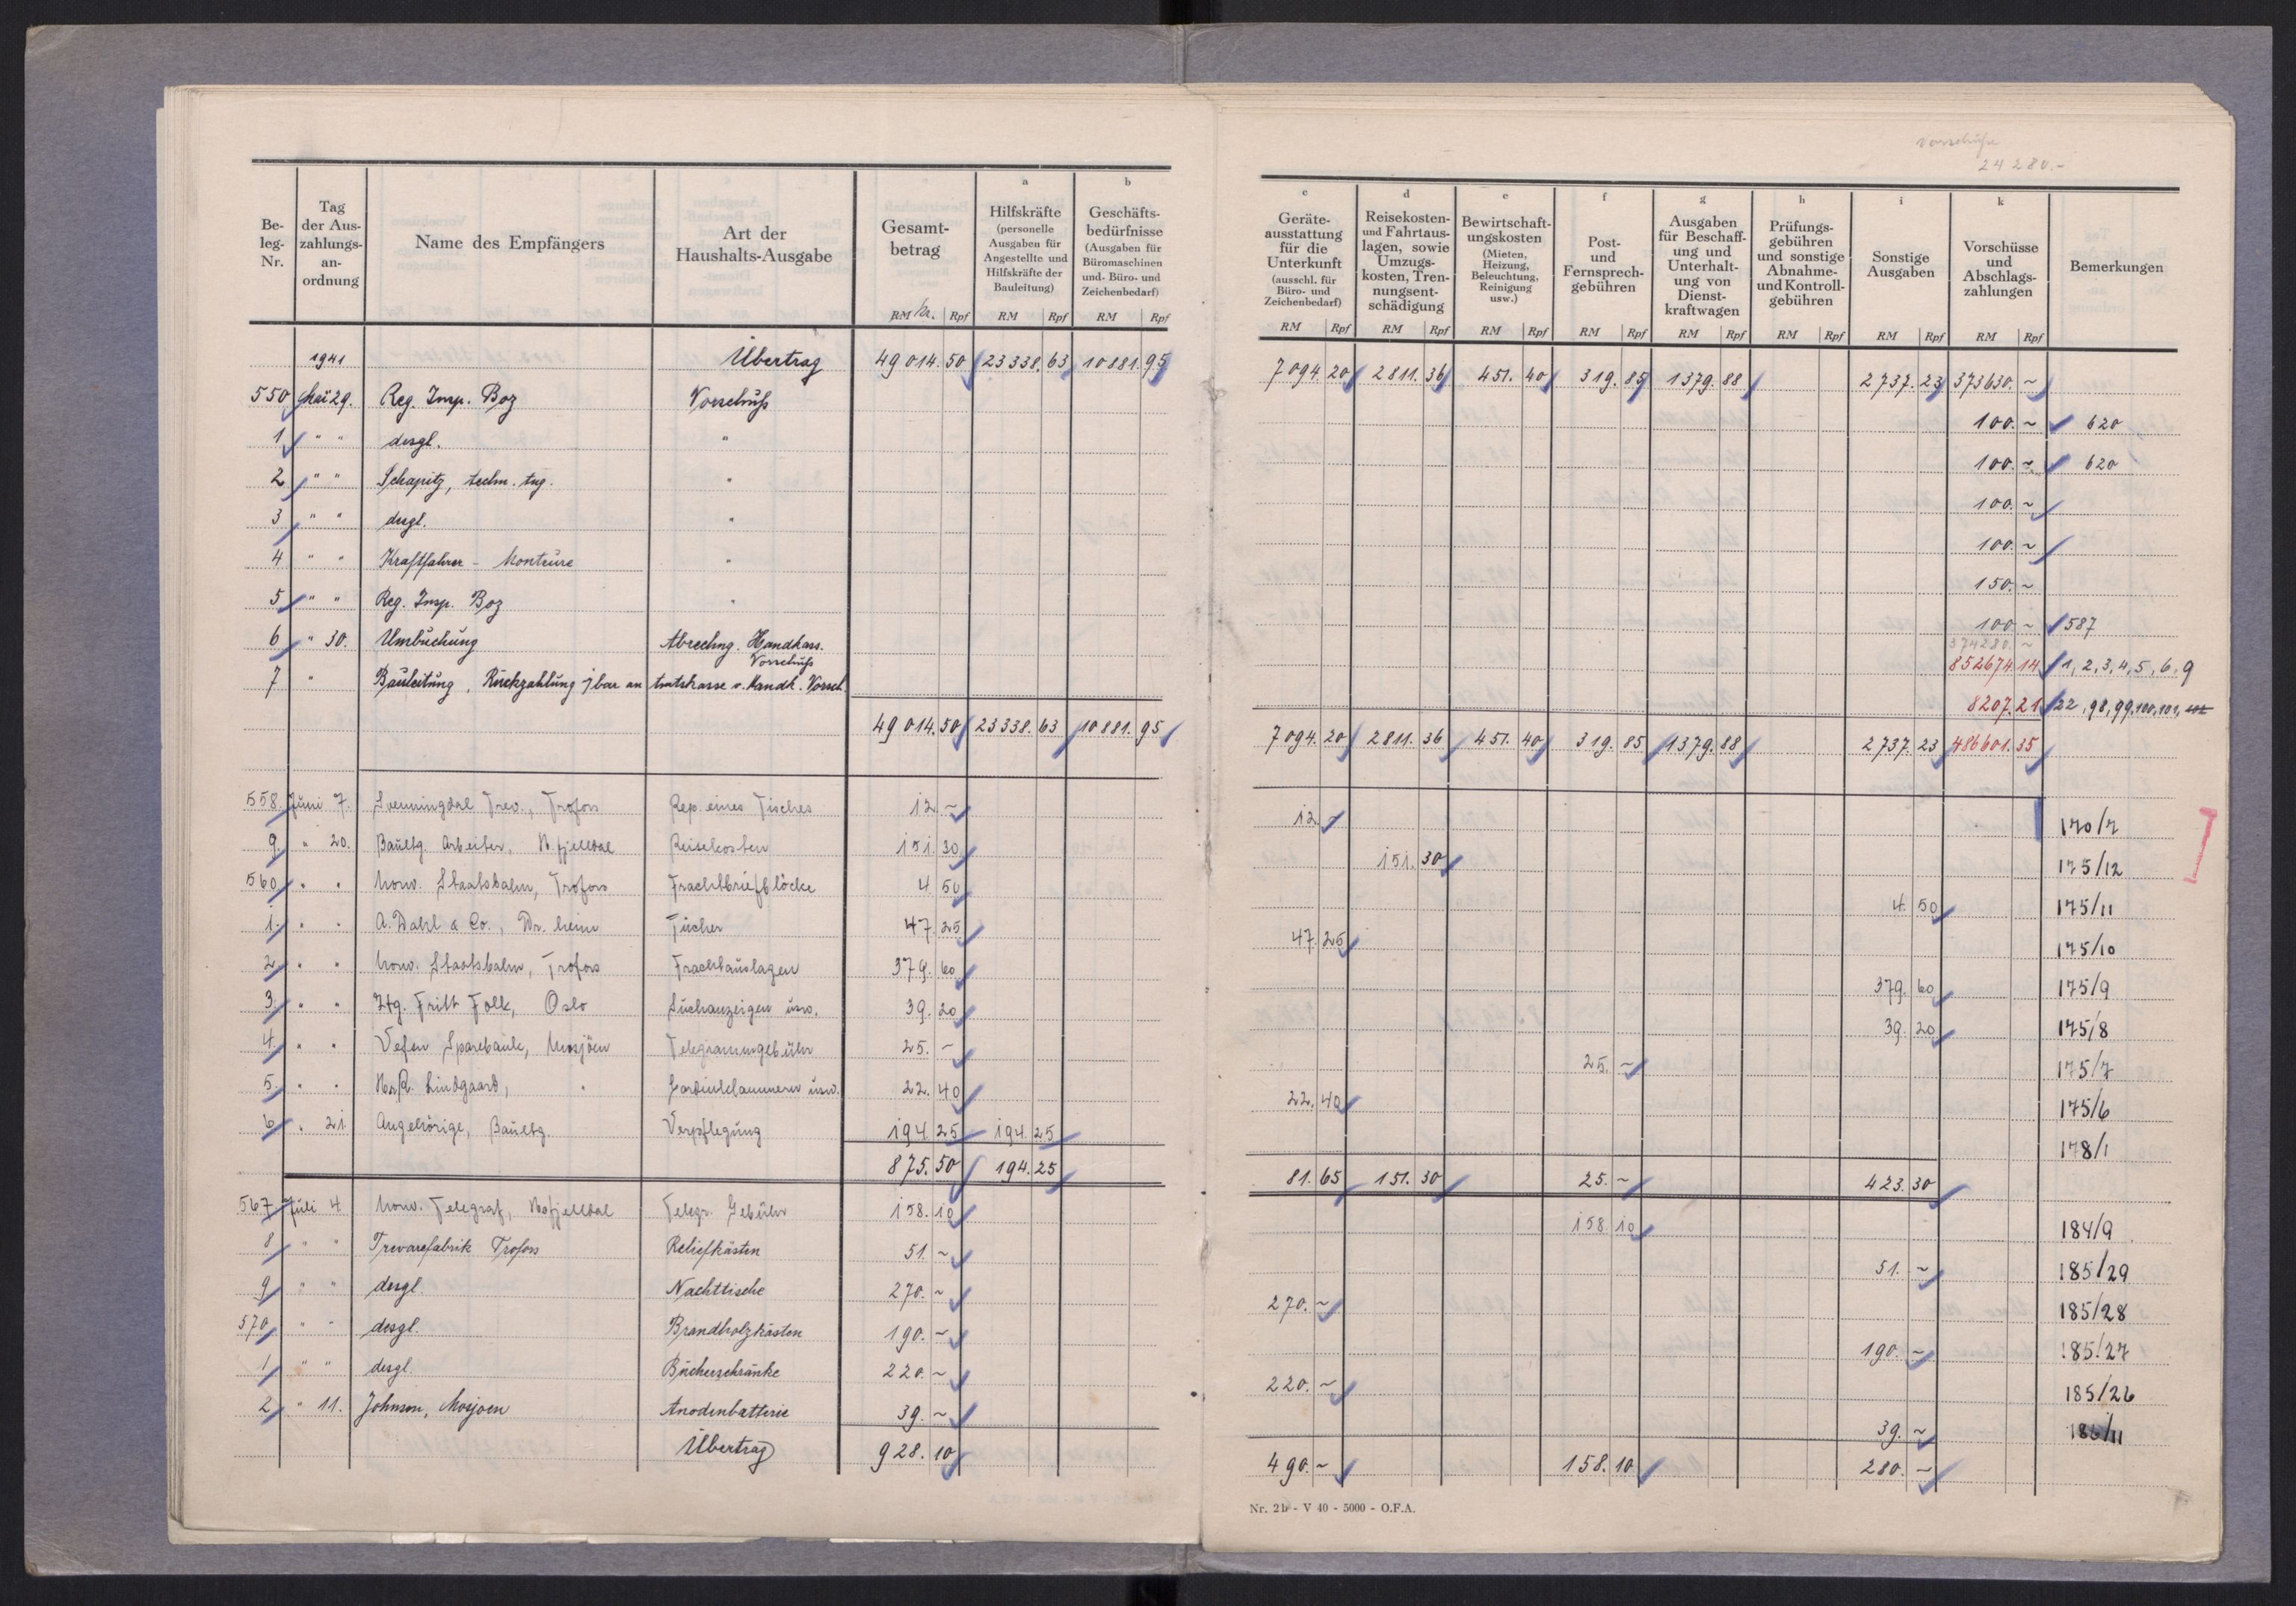 Vorschüsse
24 280.-
Be-
leg-
Nr.
Tag
der Aus-
zahlungs-
an-
ordnung
Name des Empfängers
Art der
Haushalts-Ausgabe
Gesamt-
betrag
RM Kr. Rpf
a
Hilfskräfte
(personelle
Ausgaben für
Angestellte und
Hilfskräfte der
Bauleitung)
RM Rpf
b
Geschäfts-
bedürfnisse
(Ausgaben für
Büromaschinen
und Büro- und
Zeichenbedarf)
RM Rpf
c
Geräte-
ausstattung
für die
Unterkunft
(ausschl. für
Büro- und
Zeichenbedarf)
RM Rpf
d
Reisekosten-
und Fahrtaus-
lagen, sowie
Umzugs-
kosten, Tren-
nungsent-
schädigung
RM Rpf
e
Bewirtschaft-
ungskosten
(Mieten,
Heizung,
Beleuchtung,
Reinigung
usw.)
RM Rpf
f
Post-
und
Fernsprech-
gebühren
RM Rpf
g
Ausgaben
für Beschaff-
ung und
Unterhalt-
ung von
Dienst-
kraftwagen
RM Rpf
h
Prüfungs-
gebühren
und sonstige
Abnahme-
und Kontroll-
gebühren
RM Rpf
i
Sonstige
Ausgaben
RM Rpf
k
Vorschüsse
und
Abschlags-
zahlungen
RM Rpf
Bemerkungen
1941 Übertrag 49 014.50 23338.63 10881.95 7094.20 2811.36 451.40 319.85 1379.88 2737.23 373630.~
550 Mai 29. Reg. Insp. Boz Vorschuß 100.~ 620
1 " " desgl. " 100.~ 620
2 " " Schapitz, techn. Ing. " 100.~
3 " " desgl. " 100.~
4 " " Kraftfahrer - Monteure " 150.~
5 " " Reg. Insp. Boz " 100 ~ 587
374280.~
6 " 30. Umbuchung Abrechng. Handkass. Vorschuß 852674.14 1, 2, 3, 4, 5, 6, 9
7 " Bauleitung, Rückzahlung j bar an Amtskasse v. Handk. Vorsch. 8207.21 22, 98, 99, 100, 101, 102
49 014.50 23338.63 10881.95 7094.20 2811.36 451.40 319.85 1379.88 2737.23 486601.35
558. Juni 7. Svenningdal Trev., Trofors Rep. eines Tisches 12 ~ 12.- 170/7
9. " 20. Baultg. Arbeiter, N. fjelldal Reisekosten 151.30 151.30 175/12
560 " " Norw. Staatsbahn, Trofors Frachtbriefblöcke 4 50 4.50 175/11
1. " " A. Dahl & Co., Dr. heim Tücher 47.25 47.25 175/10
2 " " Norw. Staatsbahn, Trofors Frachtauslagen 379.60 379.60 175/9
3. " " Ztg. Fritt Folk, Oslo Suchanzeigen usw. 39.20 39.20 175/8
4. " " Vefsn Sparebank, Mosjöen Telegrammgebühr 25.- 25.~ 175/7
5. " " Lindgaard, " Gardinklammern usw. 22.40 22.40 175/6
6 " 21 Angehörige, Baultg. Verpflegung 194.25 194.25 178/1
875.50 194.25 81.65 151.30 25.~ 423.30
567 Juli 4 Norw. Telegraf, N. fjelldal Telegr. Gebühr 158.10 158.10 184/9
8 " " Trevarefabrik Trofors Reliefkästen 51.~ 51.~ 185/29
9 " " desgl. Nachttische 270.~ 270.~ 185/28
570 " " desgl. Brandholzkästen 190.~ 190.~ 185/27
1 " " desgl. Bücherschränke 220.~ 220.~ 185/26
2 " 11. Johnson, Mosjoen Anodenbatterie 39.~ 39.~ 186/11
Übertrag 928.10 490.~ 158.10 280.~
Nr. 2b - V 40 - 5000 - O.F.A.